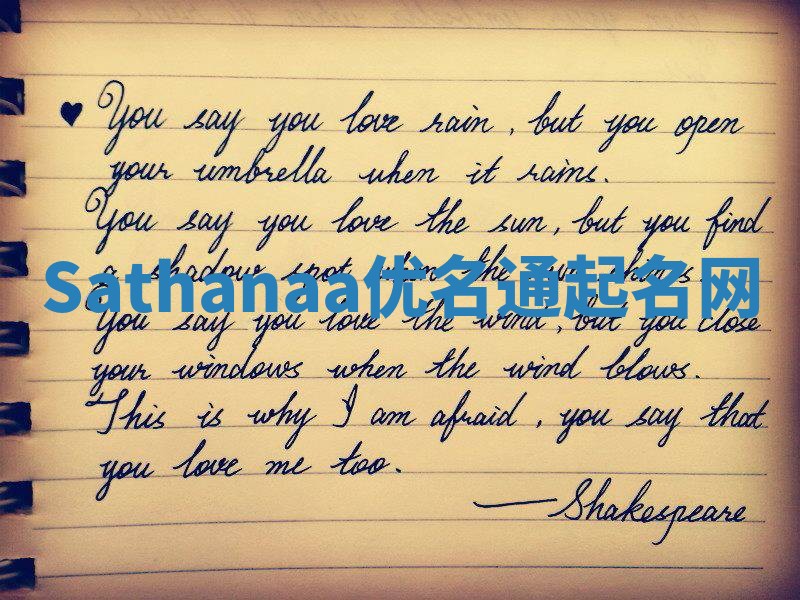 ♥ You say you love rain, but you open
your umbrella when it rains.
You say you love the sun, but you find
a shadow spot when the sun shines.
Sathanaa优名通起名网
You say you love the wind, but you close
your windows when the wind blows.
This is why I am afraid, you say that
you love me too.
—Shakespeare